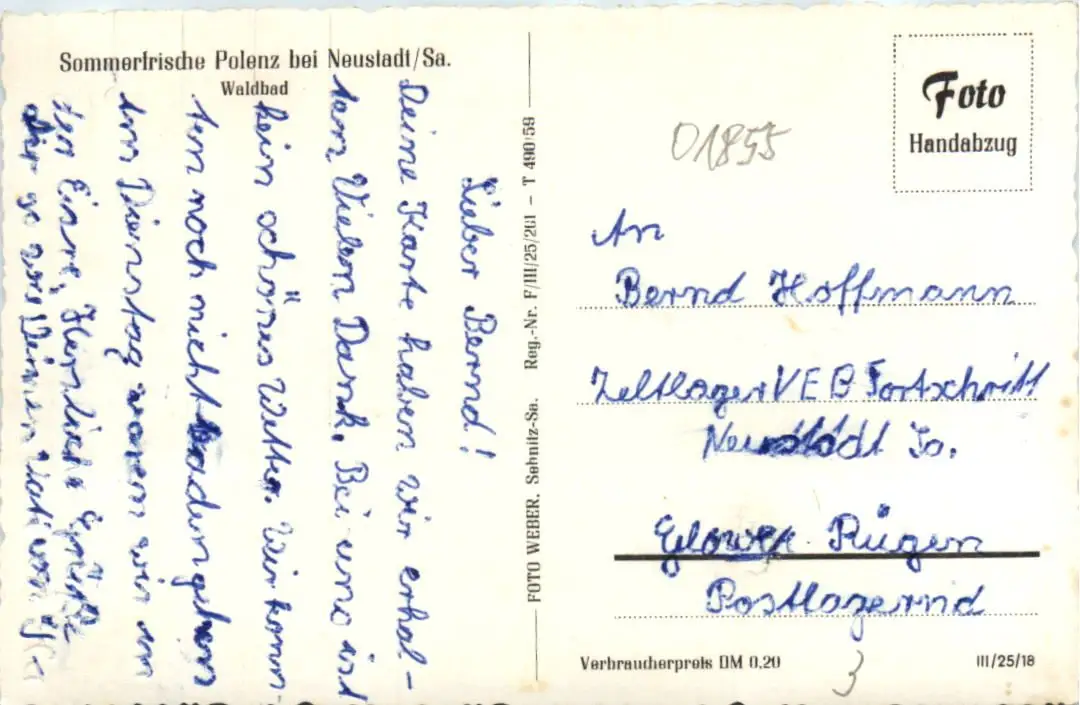 Sommerfrische Polenz bei Neustadt/Sa.
Waldbad
Lieber Bernd!
Deine Karte haben wir erhal-
ten Vielen Dank. Bei uns ist
kein schönes Wetter. Wir konn-
ten noch nicht baden gehen
am Dienstag waren wir in
der Herzliche Grüße
FOTO WEBER. Sebnitz-Sa. Reg.-Nr. F/III/25/261 — T 490/59
Foto
Handabzug
01855
An
Bernd Hoffmann
Zeltlager VEB Fortschritt
Neustadt Sa.
Glowe Rügen
Postlagernd
Verbraucherpreis DM 0,20
III/25/18
3